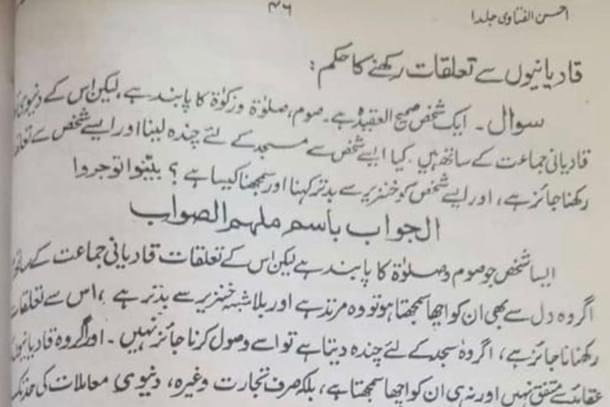 ۴۶
احسن الفتاویٰ جلد ۱
قادیانیوں سے تعلقات رکھنے کا حکم :
سوال ۔ ایک شخص صحیح العقیدہ ہے ۔ صوم، صلوٰۃ وزکوٰۃ کا پابند ہے، لیکن اس کے دنیوی
قادیانی جماعت کے ساتھ ہیں ۔ کیا ایسے شخص سے مسجد کے لئے چندہ لینا اور ایسے شخص سے
رکھنا جائز ہے، اور ایسے شخص کو خنزیر سے بدتر کہنا اور سمجھنا کیسا ہے؟ بینوا توجروا
الجواب باسم ملہم الصواب
ایسا شخص جو صوم و صلوٰۃ کا پابند ہے لیکن اس کے تعلقات قادیانی جماعت کے
اگر وہ دل سے بھی ان کو اچھا سمجھتا ہو تو وہ مرتد ہے اور بلا شبہ خنزیر سے بدتر ہے، اس سے تعلقات
رکھنا ناجائز ہے، اگر وہ مسجد کے لئے چندہ دیتا ہے تو اسے وصول کرنا جائز نہیں ۔ اور اگر وہ قادیانیوں
عقائد سے متفق نہیں اور نہ ہی ان کو اچھا سمجھتا ہے، بلکہ صرف تجارت وغیرہ، دنیوی معاملات کی حد تک